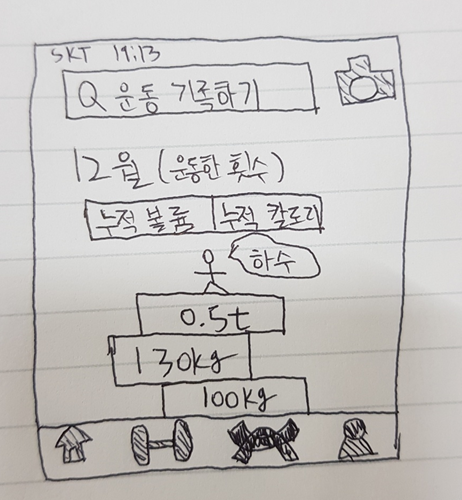 SKT 19:13
Q 운동 기록하기
12월 (운동한 횟수)
누적 볼륨 누적 칼로리
하수
0.5t
130kg
100kg